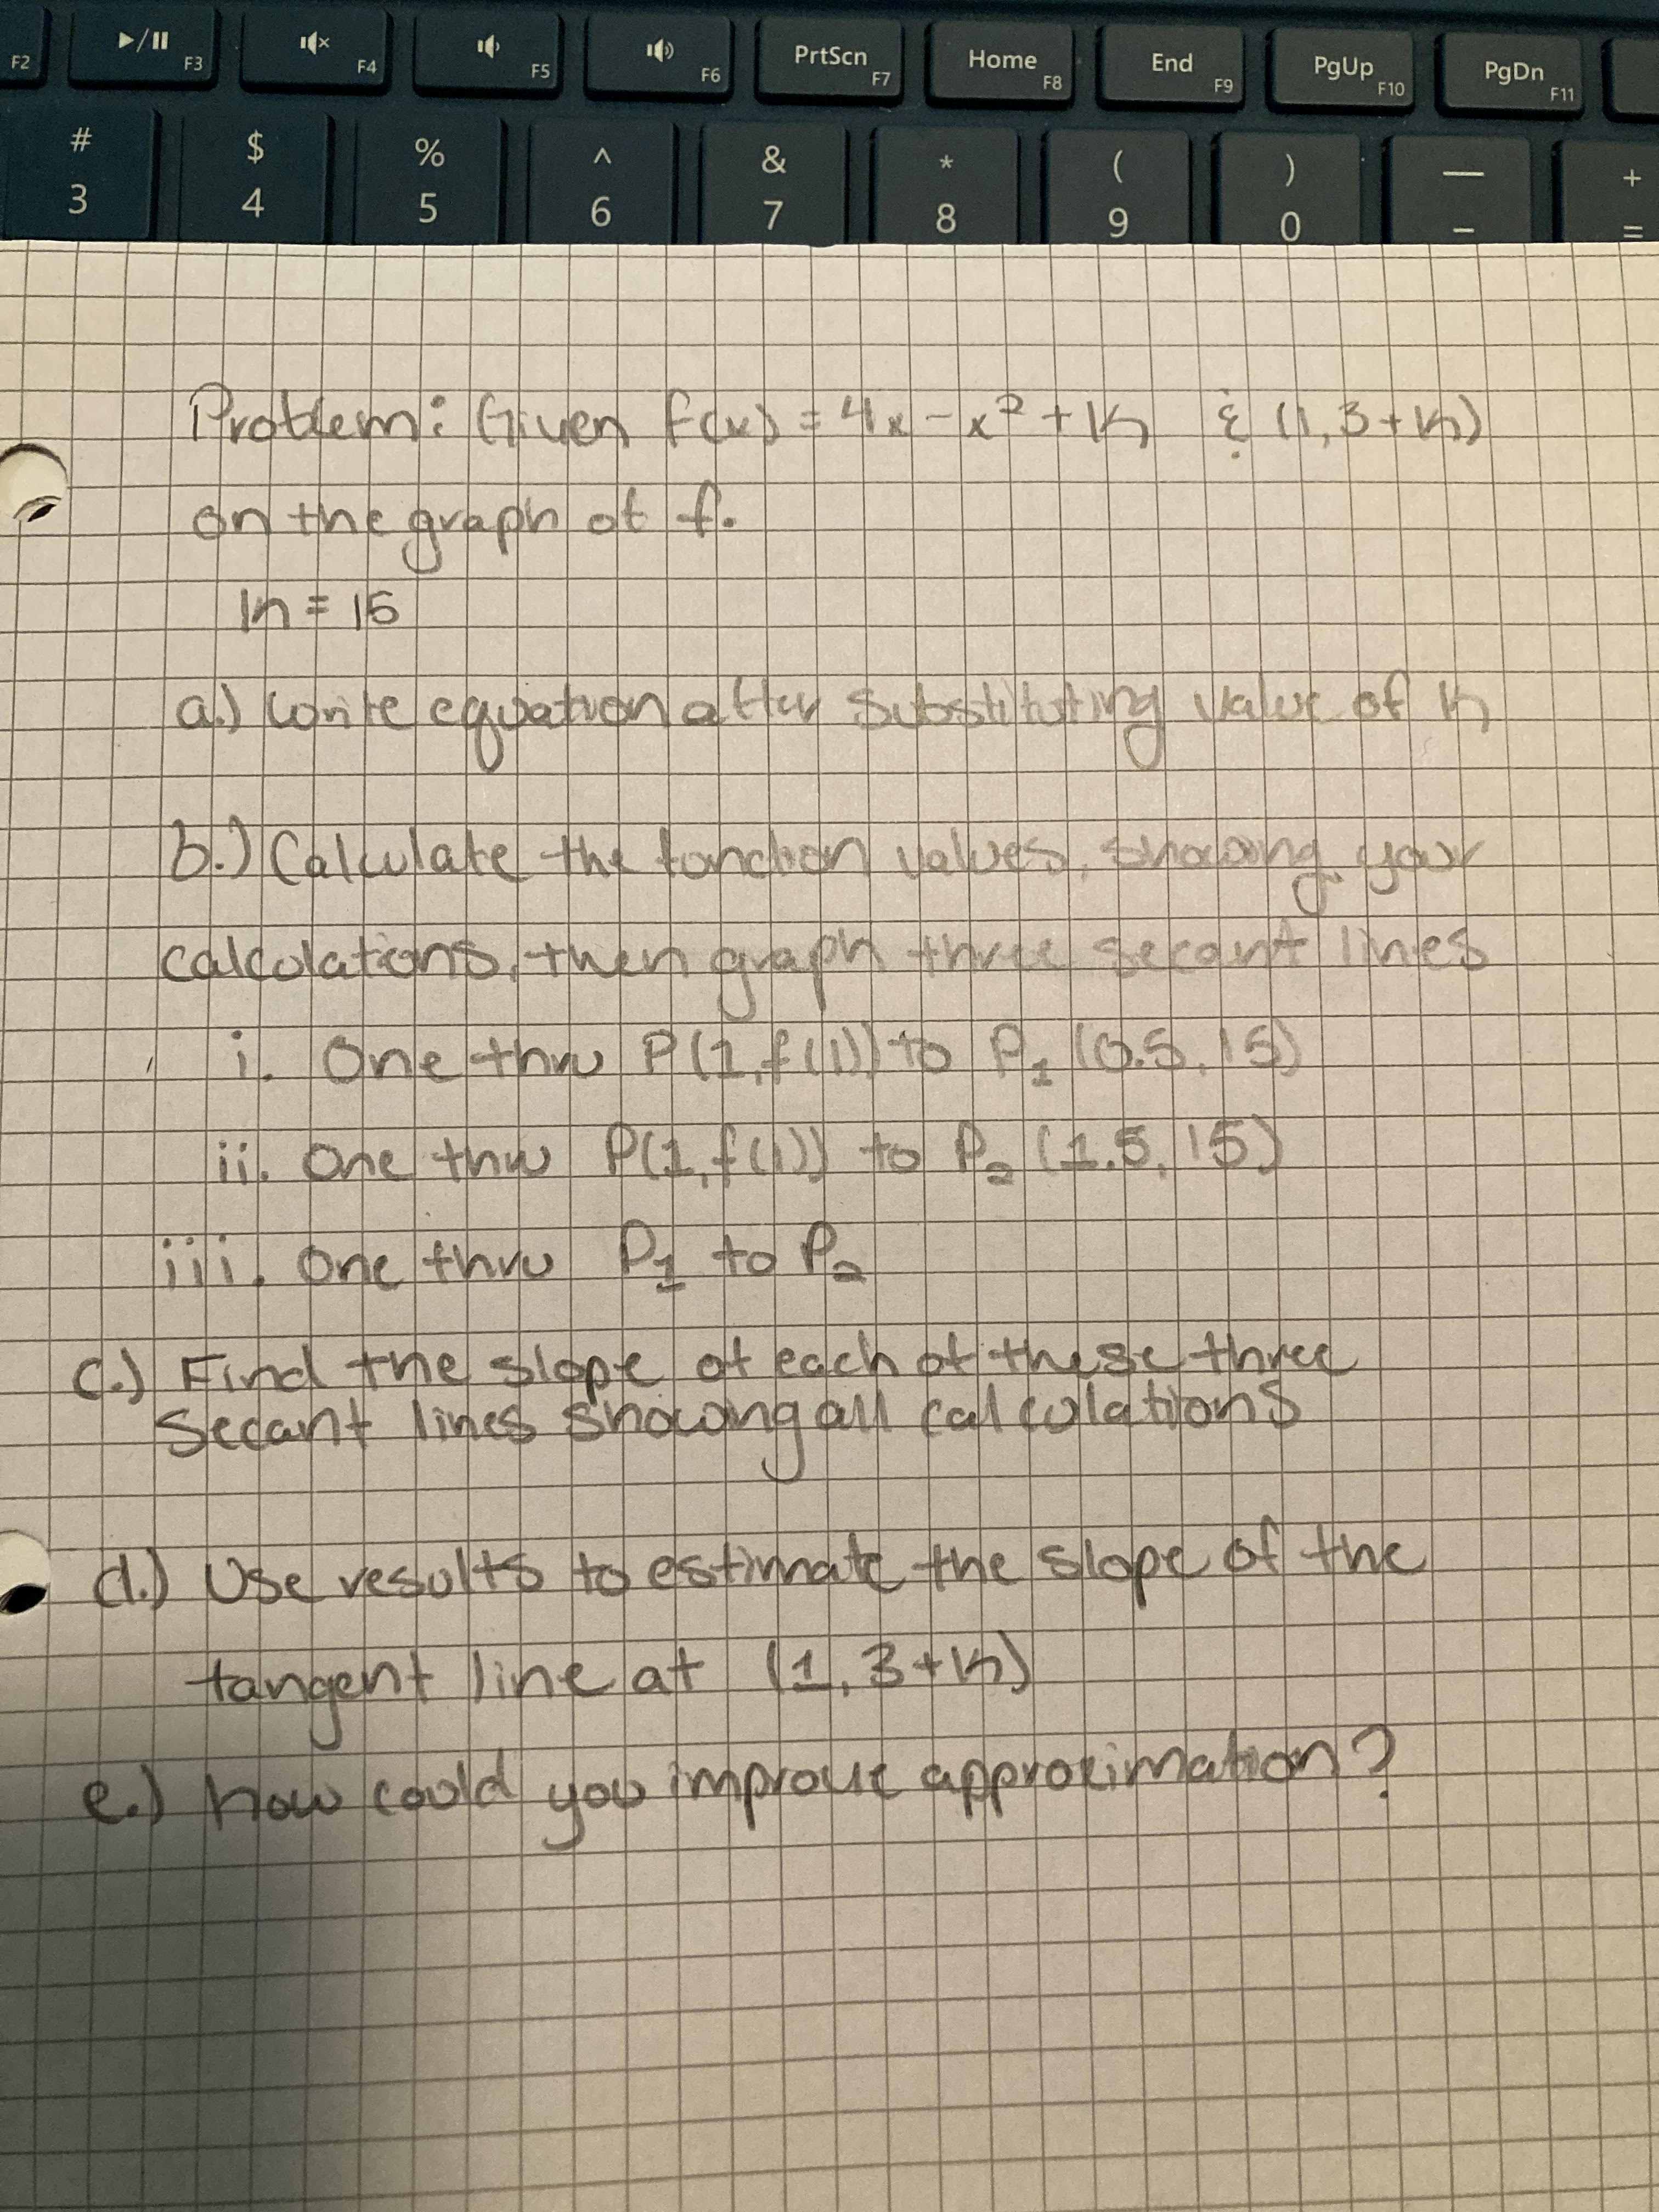 F2 ▶/II F3 F4 F5 F6 PrtScn F7 Home F8 End F9 PgUp F10 PgDn F11
# $ % ^ & * ( ) — +
3 4 5 6 7 8 9 0 - =
Problem: Given f(x) = 4x - x² + K & (1, 3+K)
on the graph of f.
K = 15
a.) Write equation after substituting value of K
b.) Calculate the function values, showing your
calculations, then graph three secant lines
i. One thru P(1, f(1)) to P₁ (0.5, 15)
ii. One thru P(1, f(1)) to P₂ (1.5, 15)
iii. One thru P₁ to P₂
c.) Find the slope of each of these three
secant lines showing all calculations
d.) Use results to estimate the slope of the
tangent line at (1, 3+K)
e.) how could you improve approximation?